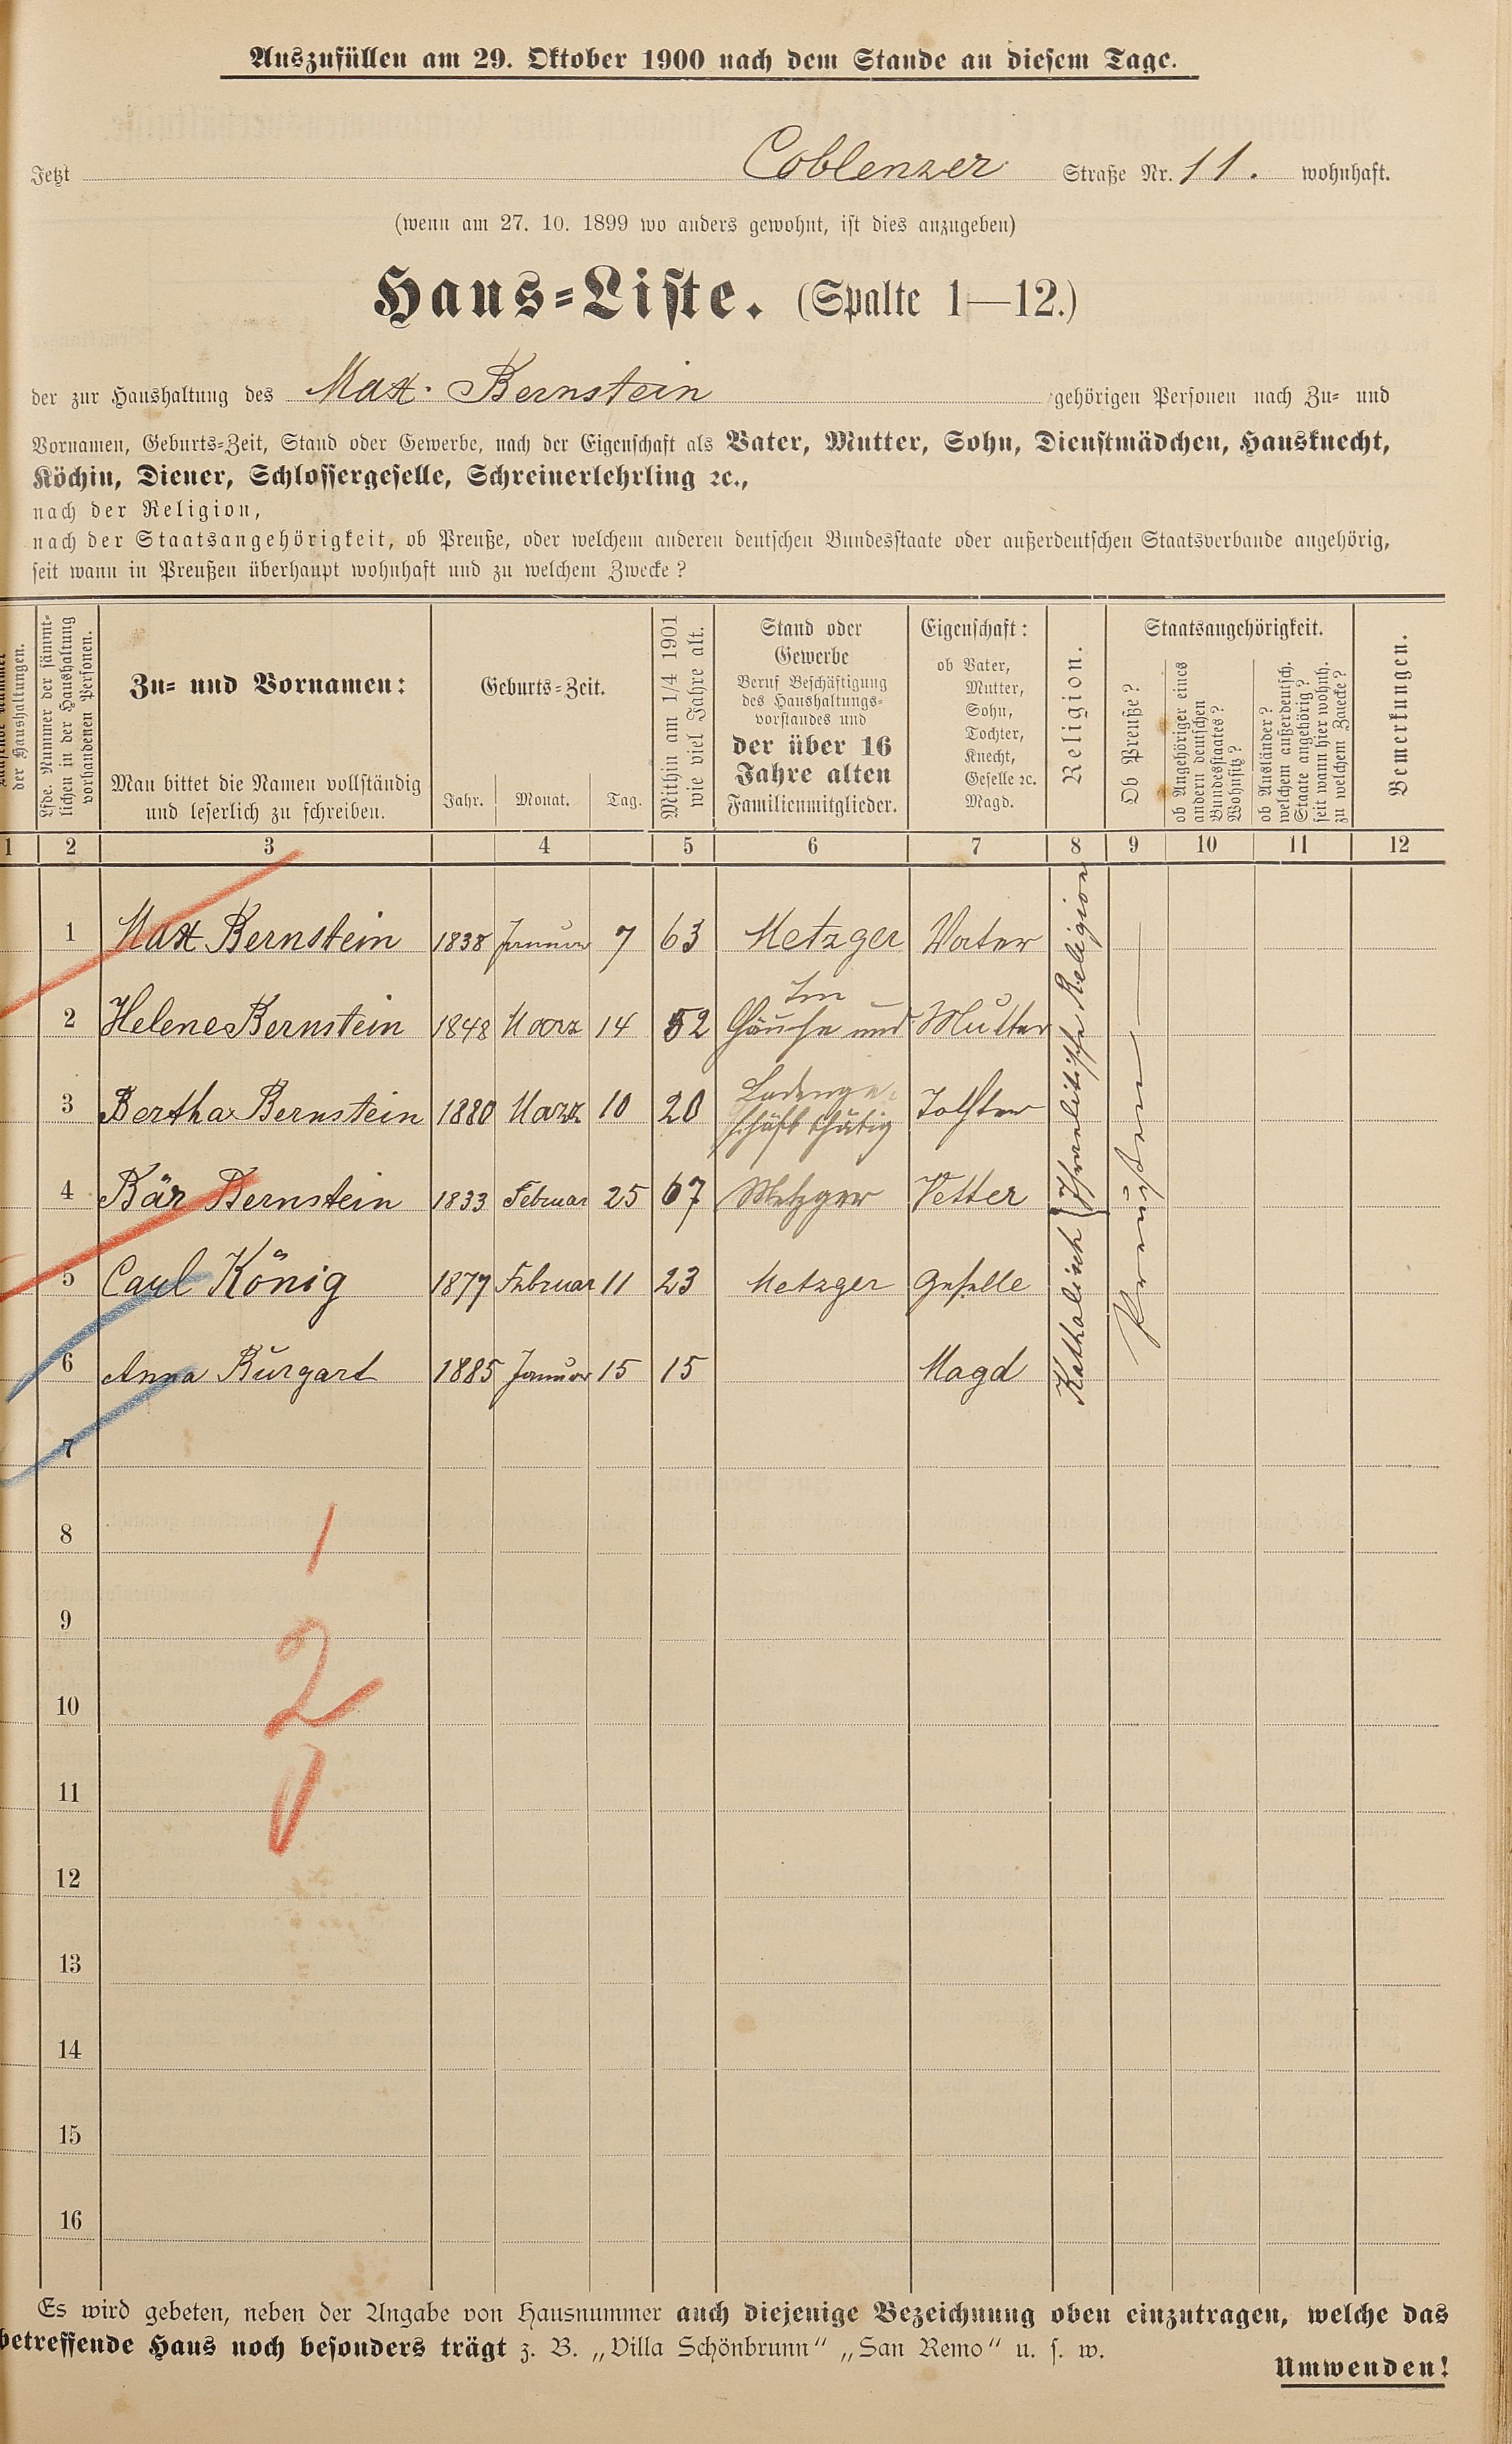 Auszufüllen am 29. Oktober 1900 nach dem Stande an diesem Tage.
Jetzt Coblenzer Straße Nr. 11. wohnhaft.
(wenn am 27. 10. 1899 wo anders gewohnt, ist dies anzugeben)
Haus-Liste. (Spalte 1—12.)
der zur Haushaltung des Max Bernstein gehörigen Personen nach Zu- und
Vornamen, Geburts-Zeit, Stand oder Gewerbe, nach der Eigenschaft als Vater, Mutter, Sohn, Dienstmädchen, Hausknecht,
Köchin, Diener, Schlossergeselle, Schreinerlehrling ꝛc.,
nach der Religion,
nach der Staatsangehörigkeit, ob Preuße, oder welchem anderen deutschen Bundesstaate oder außerdeutschen Staatsverbande angehörig,
seit wann in Preußen überhaupt wohnhaft und zu welchem Zwecke?
der Haushaltungen.
Lfde. Nummer der sämmt-
lichen in der Haushaltung
vorhandenen Personen.
Zu- und Vornamen:
Man bittet die Namen vollständig
und leserlich zu schreiben.
Geburts-Zeit.
Jahr. Monat. Tag.
Mithin am 1/4 1901
wie viel Jahre alt.
Stand oder
Gewerbe
Beruf Beschäftigung
des Haushaltungs-
vorstandes und
der über 16
Jahre alten
Familienmitglieder.
Eigenschaft:
ob Vater,
Mutter,
Sohn,
Tochter,
Knecht,
Geselle ꝛc.
Magd.
Religion.
Staatsangehörigkeit.
Ob Preuße?
ob Angehöriger eines
andern deutschen
Bundesstaates?
Wohnsitz?
ob Ausländer?
welchem außerdeutsch.
Staate angehörig?
seit wann hier wohnh.
zu welchem Zwecke?
Bemerkungen.
1 2 3 4 5 6 7 8 9 10 11 12
1 Max Bernstein 1838 Januar 7 63 Metzger Vater
2 Helene Bernstein 1848 März 14 52 Im Hause und Mutter
3 Bertha Bernstein 1880 März 10 20 Ladenge-
schäft thätig Tochter
4 Bär Bernstein 1833 Februar 25 67 Metzger Vetter
5 Carl König 1877 Februar 11 23 Metzger Geselle
6 Anna Burgart 1885 Januar 15 15 Magd
Israelitische Religion
Katholisch
Preußen
7
8
9
10
11
12
13
14
15
16
1
2
0
Es wird gebeten, neben der Angabe von Hausnummer auch diejenige Bezeichnung oben einzutragen, welche das
betreffende Haus noch besonders trägt z. B. „Villa Schönbrunn“ „San Remo“ u. s. w.
Umwenden!